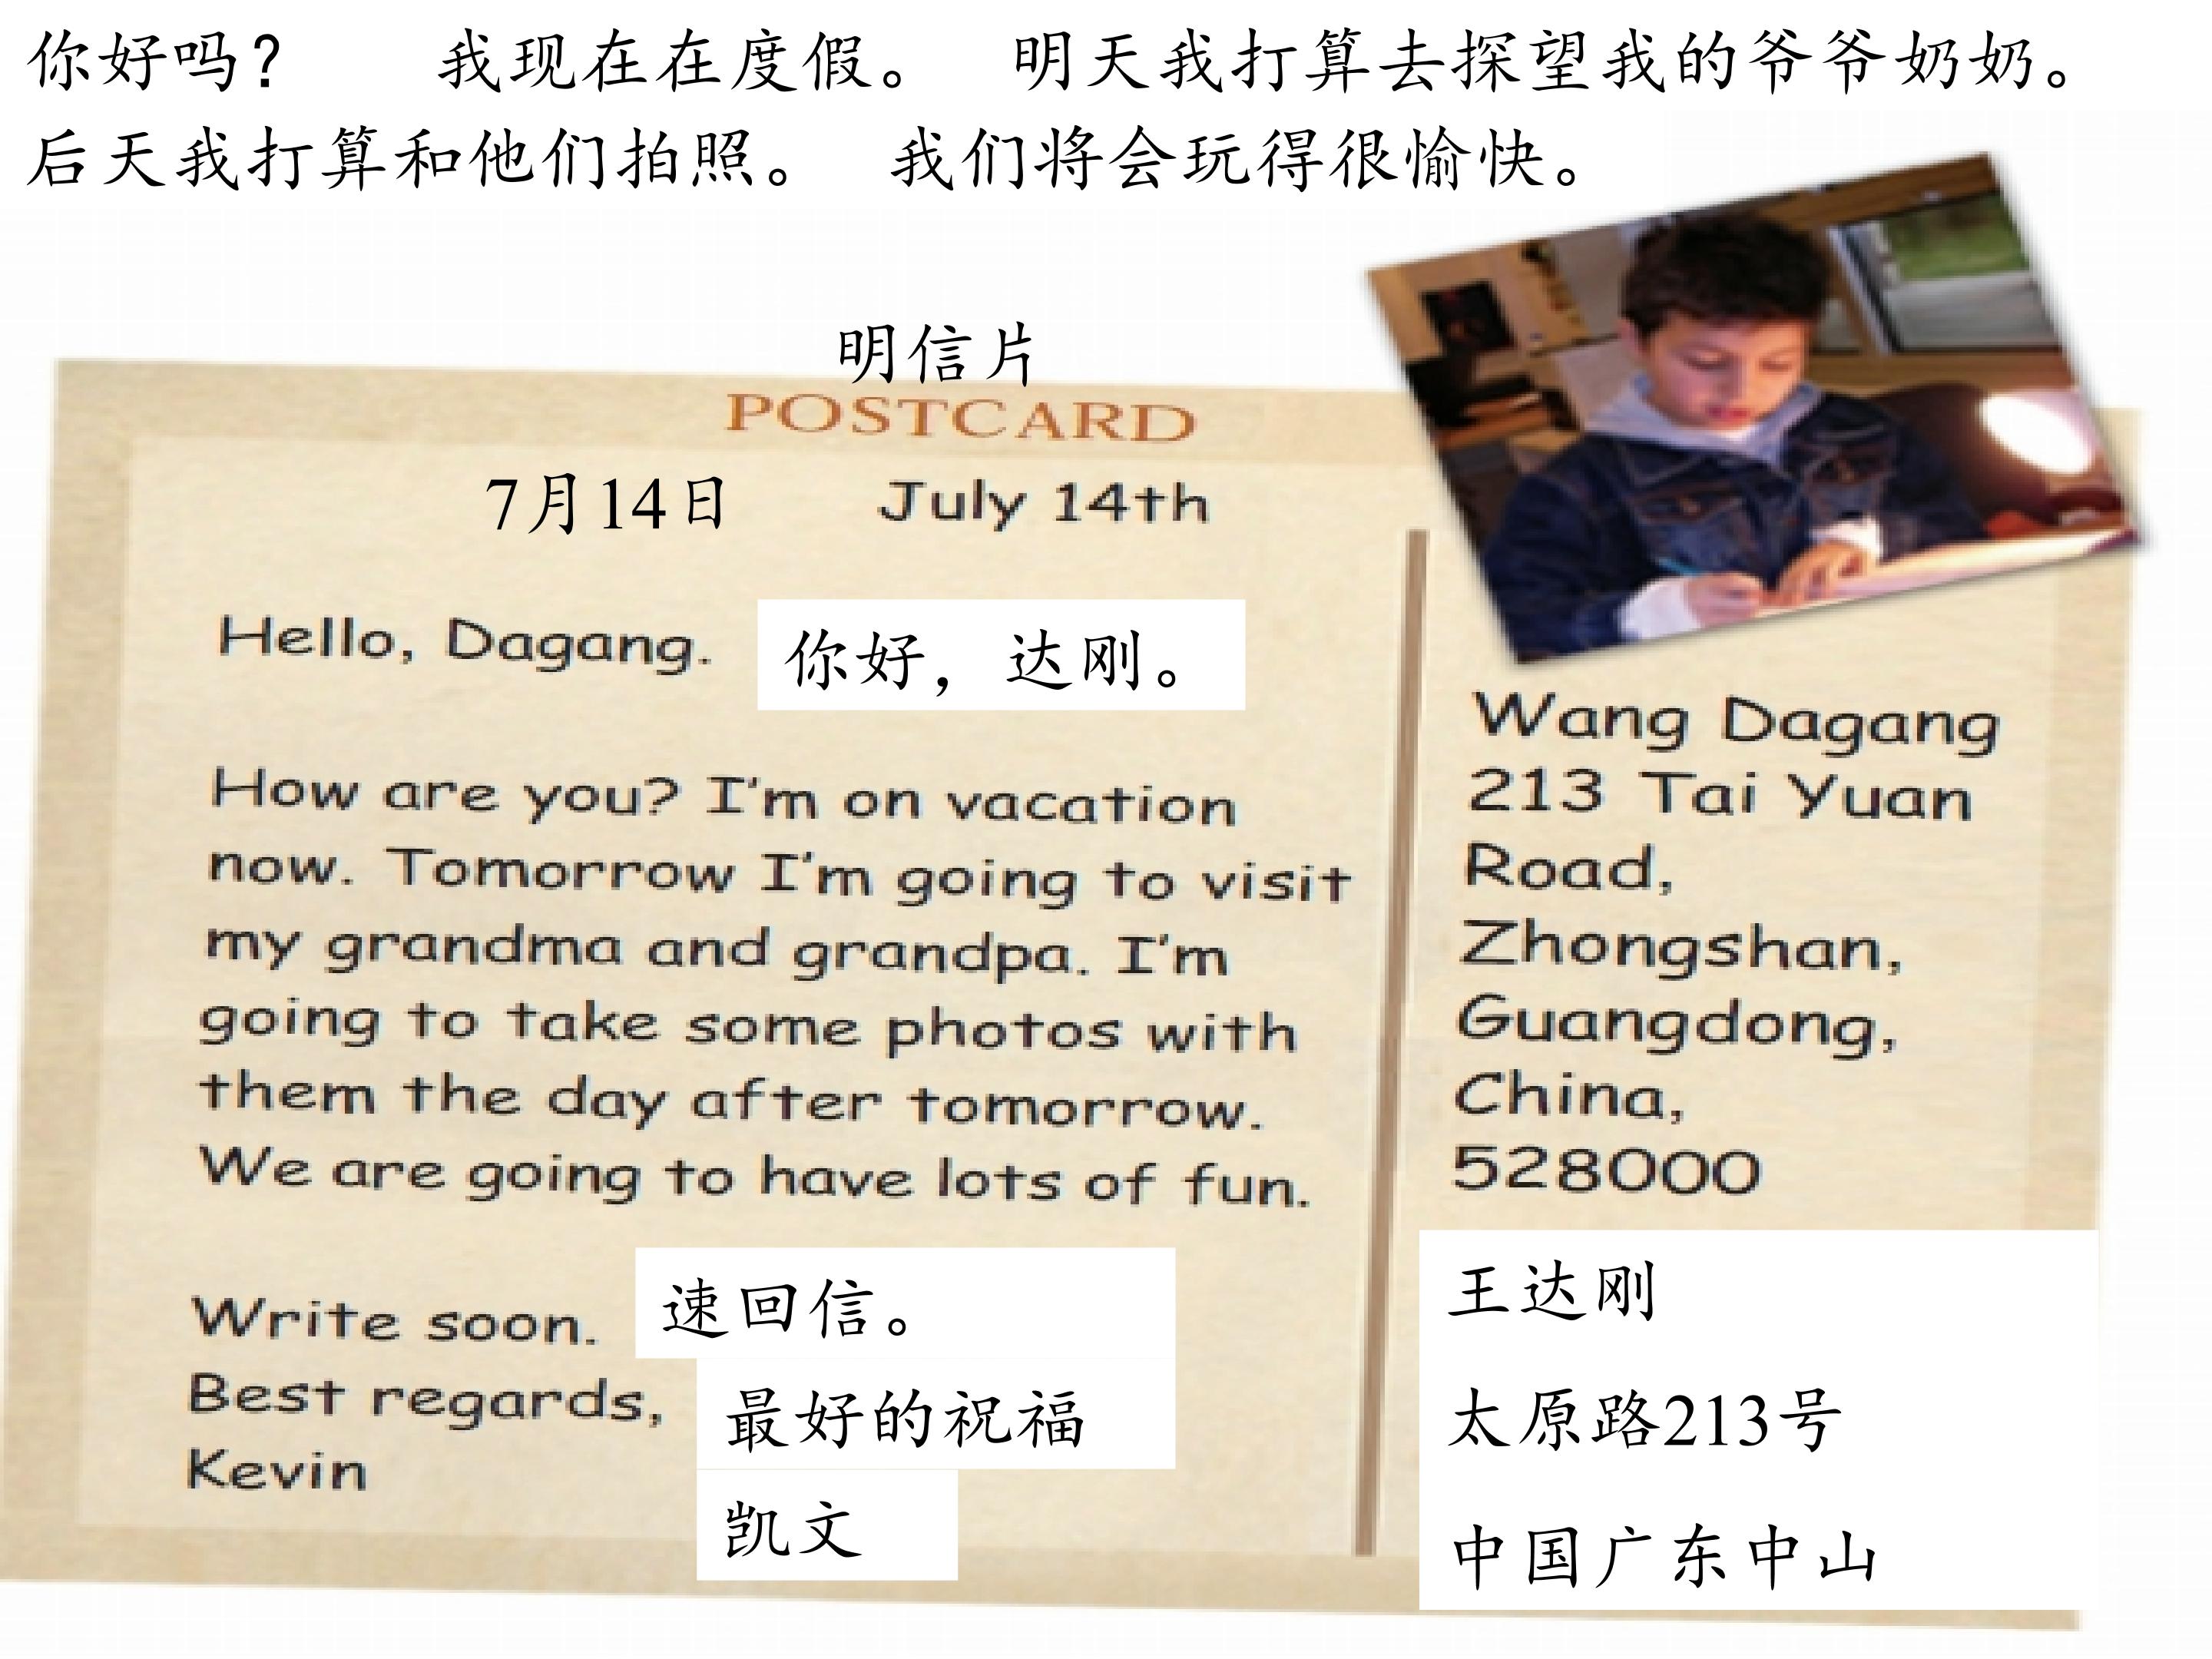 你好吗？ 我现在在度假。 明天我打算去探望我的爷爷奶奶。
后天我打算和他们拍照。 我们将会玩得很愉快。
明信片
POSTCARD
7月14日 July 14th
Hello, Dagang. 你好，达刚。
How are you? I'm on vacation
now. Tomorrow I'm going to visit
my grandma and grandpa. I'm
going to take some photos with
them the day after tomorrow.
We are going to have lots of fun.
Write soon. 速回信。
Best regards, 最好的祝福
Kevin 凯文
Wang Dagang
213 Tai Yuan
Road,
Zhongshan,
Guangdong,
China,
528000
王达刚
太原路213号
中国广东中山